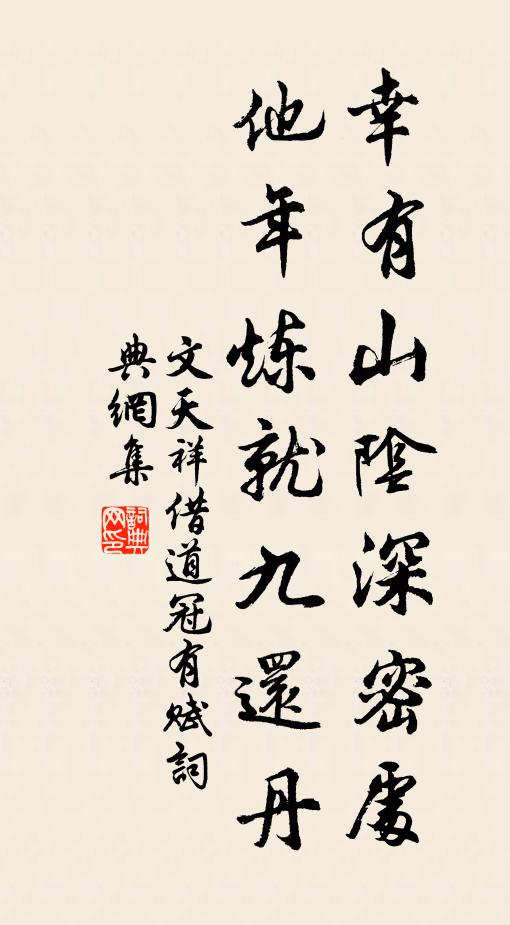 幸有山陰深密處
他年炼就九還丹
文天祥借道冠有賦詞
典網集
詞典網印